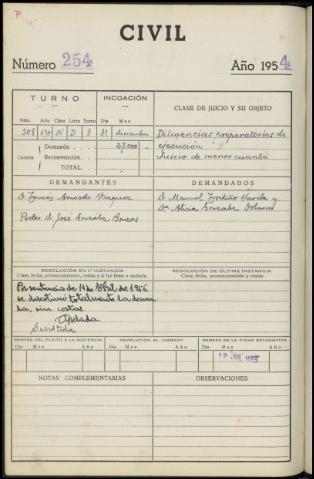 CIVIL
Número 254 Año 1954
TURNO INCOACIÓN CLASE DE JUICIO Y SU OBJETO
Núm. Año Clase Letra Turno Día Mes
508 N D 3 31 diciembre Diligencias preparatorias de
Demanda 27,000 ejecución
Cuantía Reconvención Juicio de menor cuantía
TOTAL
DEMANDANTES DEMANDADOS
D. Tomás Vazquez D. Manuel Varela y
Procr. D. José González Dª Alicia Gonzalez
RESOLUCIÓN EN 1.ª INSTANCIA RESOLUCIÓN DE ÚLTIMA INSTANCIA
Clase, fecha, pronunciamiento, costas y si fué firme o apelada Clase, fecha, pronunciamiento, costas
Por sentencia de 14 de Abril de 1955
se desestimó totalmente la deman
da, sin costas.
Apelada
Desistida
REMESA DEL PLEITO A LA AUDIENCIA DEVOLUCIÓN AL JUZGADO REMESA DE LA FICHA ESTADÍSTICA
Día Mes Año Día Mes Año Día Mes Año
12 1955
NOTAS COMPLEMENTARIAS OBSERVACIONES